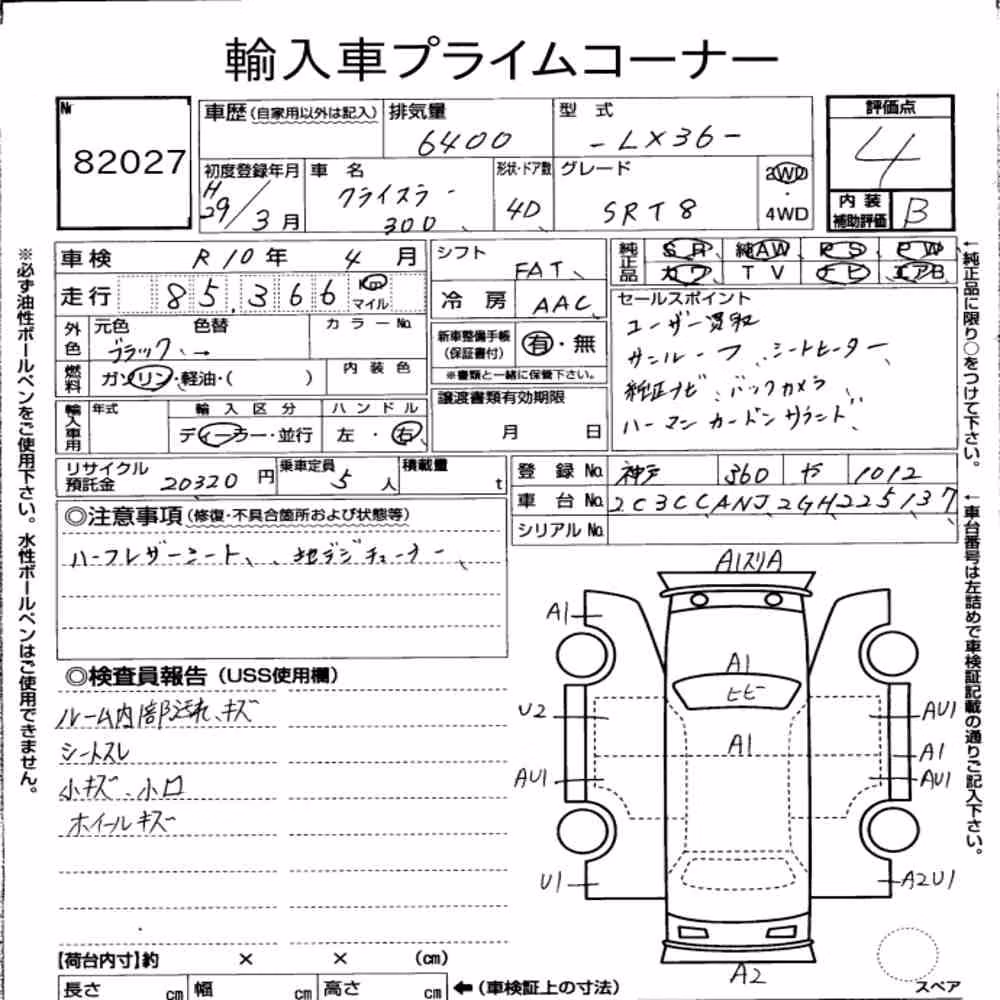 輸入車プライムコーナー
№
82027
車歴 (自家用以外は記入)
排気量
6400
型 式
-LX36-
評価点
4
内装補助評価
B
初度登録年月
H29/3月
車 名
クライスラー
300
形状・ドア数
4D
グレード
SRT8
2WD
・
4WD
車検 R10年 4月
シフト
FAT
純正品
SR 純AW PS PW
カワ TV ナビ エアB
走行 85,366 Km マイル
冷 房 AAC
セールスポイント
ユーザー買取
サンルーフ、シートヒーター
純正ナビ、バックカメラ
ハーマンカードンサラウンド
外色
元色 色替
カラー№
ブラック →
新車整備手帳
(保証書付)
有・無
※書類と一緒に保管下さい。
燃料
ガソリン・軽油・( )
内装色
輸入車用
年式
輸入区分
ハンドル
ディーラー・並行
左・右
譲渡書類有効期限
月 日
リサイクル預託金
20320円
乗車定員
5人
積載量
t
登録 № 神戸 360 や 1012
車台 № 2C3CCANJ2GH225137
シリアル №
◎注意事項 (修復・不具合箇所および状態等)
ハーフレザーシート、地デジチューナー
◎検査員報告 (USS使用欄)
ルーム内部汚れ、キズ
シートスレ
小キズ、小凹
ホイールキズ
A1スリA
A1
A1
ヒビ
U2
AU1
A1
A1
AU1
AU1
U1
A2U1
A2
スペア
【荷台内寸】約 × × (cm)
長さ cm 幅 cm 高さ cm
←(車検証上の寸法)
※必ず油性ボールペンをご使用下さい。水性ボールペンはご使用できません。
←純正品に限り○をつけて下さい。
←車台番号は左詰めで車検証記載の通りご記入下さい。